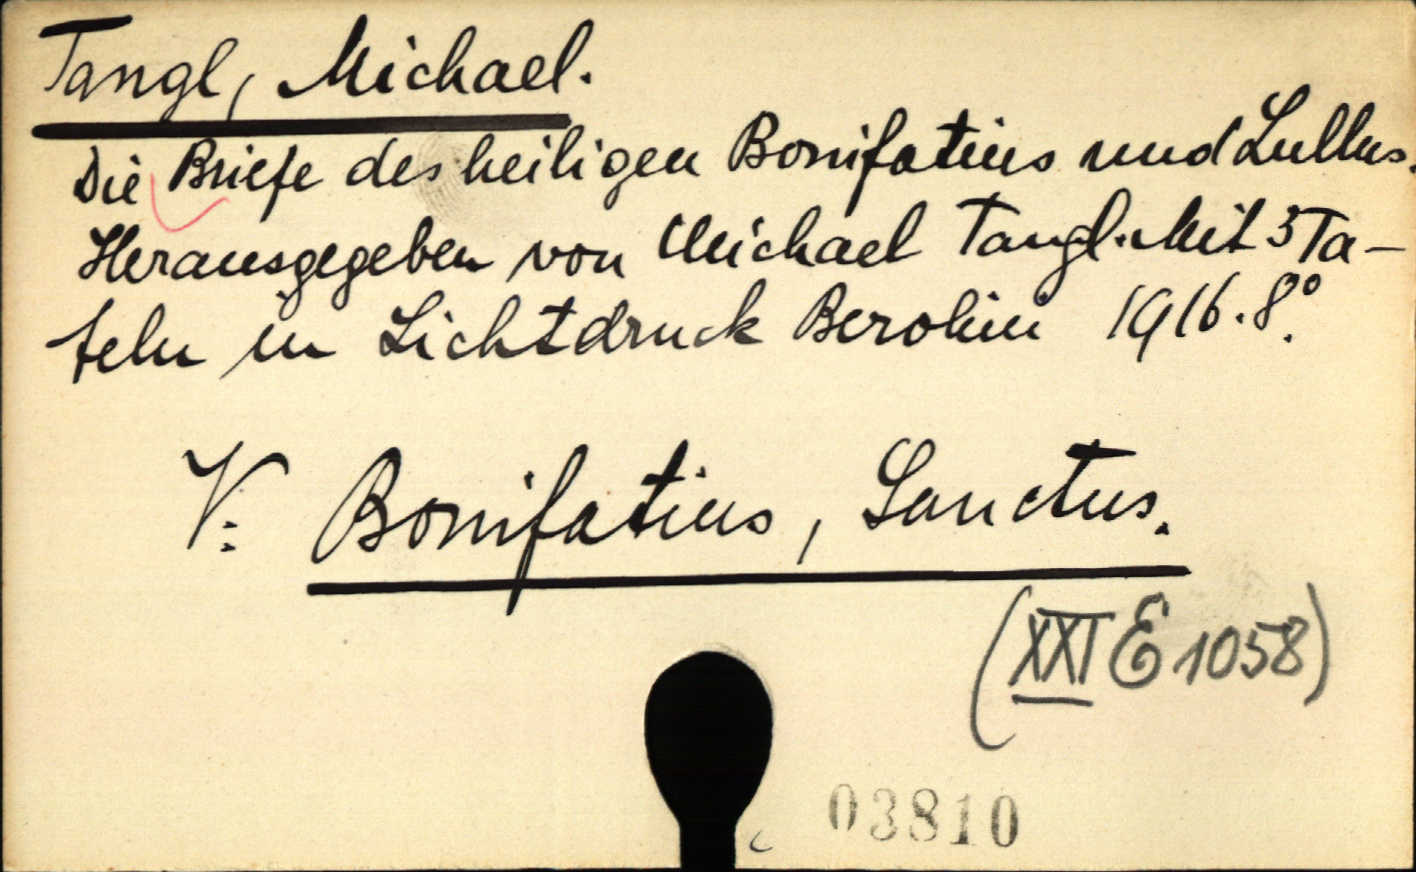 Tangl, Michael.
Die Briefe des heiligen Bonifatius und Lullus.
Herausgegeben von Michael Tangl. Mit 3 Ta-
feln in Lichtdruck Berolini 1916. 8°.
V: Bonifatius, Sanctus.
(XXI E 1058)
03810